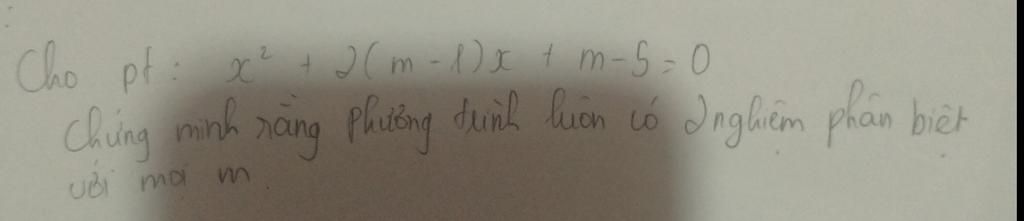 Cho pt: x² + 2(m-1)x + m-5=0
Chứng minh rằng phương trình luôn có 2 nghiệm phân biệt
với mọi m